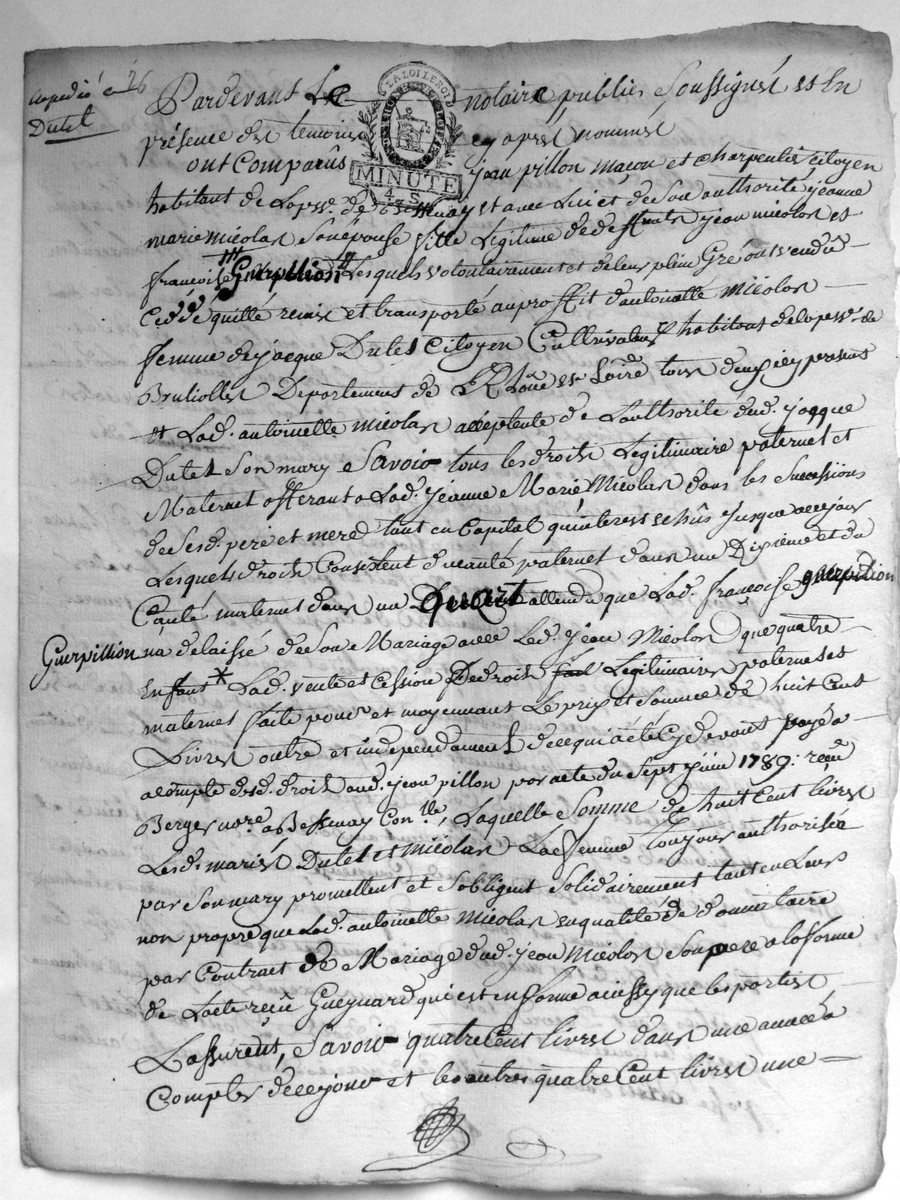 expedié a 26
Dutel
Pardevant Le notaire public Soussigné et En
présence des temoins cy apres nommés
LA LOI LE ROI
MINUTE
4 S
ont Comparûs jean pillon maçon et charpentier Citoyen
habitant de La psse. de Bessenay et avec Lui et de Son authorité jeanne
marie micolas Son epouse fille Legitime de defunts jean micolas et
françoise Guerpillion Lesquels volontairement et de leur plein Gré ont vendu
Cédé quitté remis et transporté au proffit d'antoinette Micolas
femme de jacque Dutel Citoyen Cultivateur habitant de la psse. de
Brullioles Departement de Rhône et Loire tous deux icy presents
et Lad. antoinette Micolas acceptente de L'authorité dud. jacque
Dutel Son mary Savoir tous les droits Legitimaire paternel et
Maternel afferant a Lad. Jeanne Marie Micolas dans les Successions
de Sesd. pere et mere tant en Capital qu'interest echûs jusque a ce jour
Lesquels droits Consistent du cauté paternel dans un Dixième et du
Cauté maternel dans un Quart attendu que Lad. françoise guerpillion
Guerpillion n'a delaissé de Son Mariage avec Led. Jean Micolas que quatre
Enfant * Lad. vente et Cession de droits Legitimaires paternel et
maternel faite pour et moyennant Le prix et Somme de huit Cent
Livres outre et independament de ce qui a été cy devant payé a
acompte desd. droits aud. jean pillon par acte du Sept juin 1789: reçu
Berger nore. a Bessenay Con.lle, Laquelle Somme de huit Cent livres
Lesd. mariés Dutel et micolas La femme toujour authorisée
par Son mary promettent et S'obligent Solidairement tant en Leurs
non propre que Lad. antoinette Micolas en qualité de donnataire
par Contrat de Mariage dud. jean Micolas Son pere a la forme
de L'acte reçu Gueynard qui est en forme ainssy que les parties
L'assurent, Savoir quatre Cent livres dans une année a
Compter de ce jour et les autres quatre Cent livres une